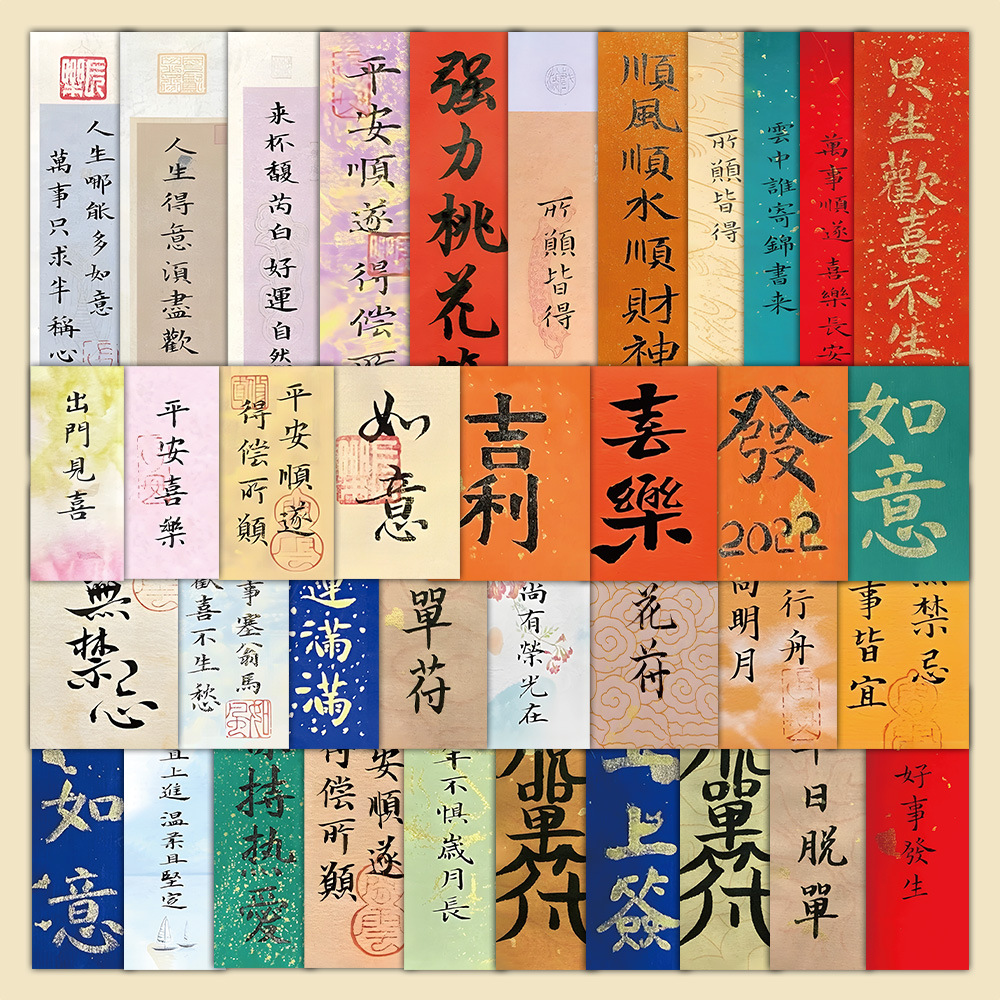 人生哪能多如意
萬事只求半稱心
人生得意須盡歡
来杯馥芮白好運自然
平安順遂得偿所
强力桃花
所願皆得
順風順水順財神
所願皆得
雲中誰寄錦書来
萬事順遂 喜樂長安
只生歡喜不生
出門見喜
平安喜樂
平安順遂
得偿所願
如意
吉利
喜樂
發
2022
如意
無禁忌
事塞翁馬
歡喜不生愁
運滿滿
單符
尚有榮光在
花符
行舟
向明月
無禁忌
事皆宜
如意
且上進温柔且堅定
持热愛
安順遂
得偿所願
年不惧歲月長
單符
上簽
單符
日脱單
好事發生